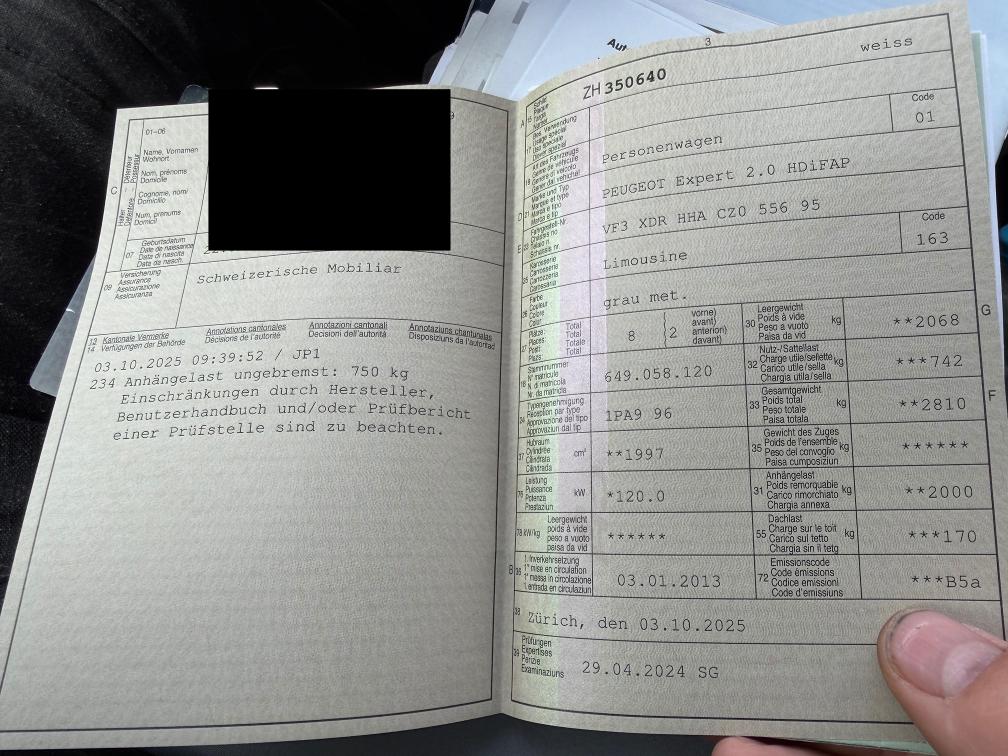 Aut
3
01-06
9
C
Halter
Détenteur
Detentore
Possessur
Name, Vornamen
Wohnort
Nom, prénoms
Domicile
Cognome, nomi
Domicilio
Num, prenums
Domicil
07
Geburtsdatum
Date de naissance
Data di nascita
Data da nasch.
09
Versicherung
Assurance
Assicurazione
Assicuranza
Schweizerische Mobiliar
13
14
Kantonale Vermerke
Verfügungen der Behörde
Annotations cantonales
Décisions de l'autorité
Annotazioni cantonali
Decisioni dell'autorità
Annotaziuns chantunalas
Disposiziuns da l'autoritad
03.10.2025 09:39:52 / JP1
234 Anhängelast ungebremst: 750 kg
Einschränkungen durch Hersteller,
Benutzerhandbuch und/oder Prüfbericht
einer Prüfstelle sind zu beachten.
A
15
Schild
Plaque
Targa
ZH 350640
weiss
17
Bes. Verwendung
Usage spécial
Uso speciale
Diever spezial
Code
01
19
Art des Fahrzeugs
Genre de véhicule
Genere di veicolo
Gener dal vehichel
Personenwagen
D
21
Marke und Typ
Marque et type
Marca e tipo
Marca e tip
PEUGEOT Expert 2.0 HDiFAP
E
23
Fahrgestell-Nr.
Châssis no
Telaio n.
Schassis nr.
VF3 XDR HHA CZ0 556 95
25
Karosserie
Carrosserie
Carrozzeria
Carossaria
Limousine
Code
163
26
Farbe
Couleur
Colore
Color
grau met.
27
Plätze: Total
Places: Total
Posti: Totale
Plazs: Total
8
2
vorne)
avant)
anteriori)
davant)
30
Leergewicht
Poids à vide
Peso a vuoto
Paisa da vid
kg
**2068
G
18
Stammnummer
N° matricule
N. di matricola
Nr. da matricla
649.058.120
32
Nutz-/Sattellast
Charge utile/sellette
Carico utile/sella
Chargia utila/sella
kg
***742
24
Typengenehmigung
Réception par type
Approvazione del tipo
Approvaziun dal tip
1PA9 96
33
Gesamtgewicht
Poids total
Peso totale
Paisa totala
kg
**2810
F
37
Hubraum
Cylindrée
Cilindrata
Cilindrada
cm³
**1997
35
Gewicht des Zuges
Poids de l'ensemble
Peso del convoglio
Paisa cumposiziun
kg
******
76
Leistung
Puissance
Potenza
Prestaziun
kW
*120.0
31
Anhängelast
Poids remorquable
Carico rimorchiato
Chargia annexa
kg
**2000
78
kW/kg
Leergewicht
poids à vuoto
peso a vuoto
paisa da vid
******
55
Dachlast
Charge sur le toit
Carico sul tetto
Chargia sin il tetg
kg
***170
B
36
1. Inverkehrsetzung
1re mise en circulation
1a messa in circolazione
1. entrada en circulaziun
03.01.2013
72
Emissionscode
Code émissions
Codice emissioni
Code d'emissiuns
***B5a
38
Zürich, den 03.10.2025
39
Prüfungen
Expertises
Perizie
Examinaziuns
29.04.2024 SG